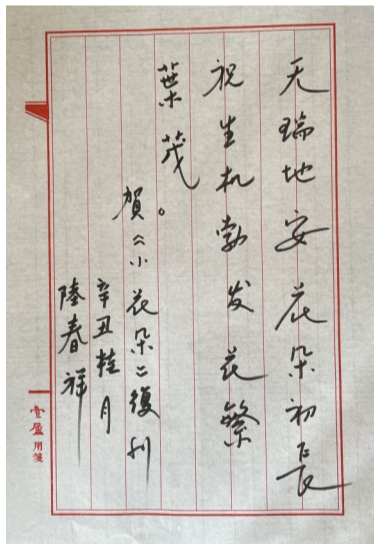 天瑞地安花朵初長
祝生机勃发花繁
葉茂。
賀《小花朵》復刊
辛丑桂月
陸春祥
壹盧用箋